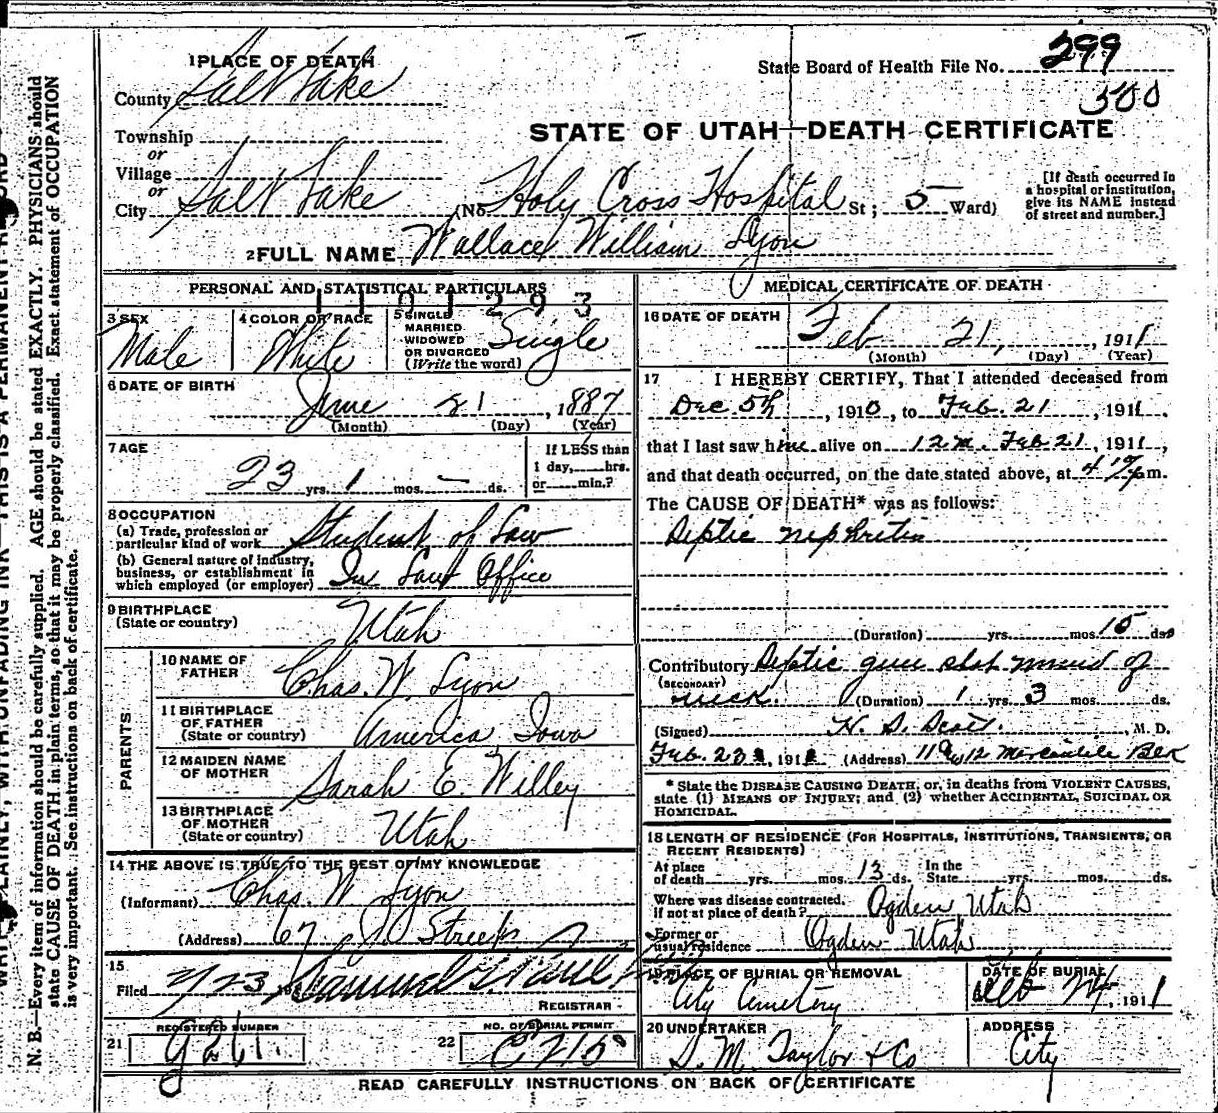 State Board of Health File No. 299
500
1 PLACE OF DEATH
County Salt Lake
STATE OF UTAH—DEATH CERTIFICATE
Township
or
Village
or
City Salt Lake (No. Holy Cross Hospital St; 5 Ward)
[If death occurred in a hospital or institution, give its NAME instead of street and number.]
2 FULL NAME Wallace William Lyon
PERSONAL AND STATISTICAL PARTICULARS
1101293
3 SEX Male
4 COLOR OR RACE White
5 SINGLE MARRIED WIDOWED OR DIVORCED (Write the word) Single
6 DATE OF BIRTH
June 21, 1887
(Month) (Day) (Year)
7 AGE
23 yrs. 1 mos. — ds.
If LESS than 1 day, hrs. or min.?
8 OCCUPATION
(a) Trade, profession or particular kind of work Student of Law
(b) General nature of industry, business, or establishment in which employed (or employer) In Law Office
9 BIRTHPLACE
(State or country) Utah
PARENTS
10 NAME OF FATHER Chas. W. Lyon
11 BIRTHPLACE OF FATHER (State or country) America, Iowa
12 MAIDEN NAME OF MOTHER Sarah E. Willey
13 BIRTHPLACE OF MOTHER (State or country) Utah
14 THE ABOVE IS TRUE TO THE BEST OF MY KNOWLEDGE
(Informant) Chas. W Lyon
(Address) 67 Street
15
Filed 2/23 191
REGISTRAR
REGISTERED NUMBER
21 G261.
NO. OF BURIAL PERMIT
22
MEDICAL CERTIFICATE OF DEATH
16 DATE OF DEATH Feb 21, 1911
(Month) (Day) (Year)
17 I HEREBY CERTIFY, That I attended deceased from
Dec 5th, 1910, to Feb. 21, 1911,
that I last saw him alive on 12 m. Feb 21, 1911,
and that death occurred, on the date stated above, at m.
The CAUSE OF DEATH* was as follows:
Septic nephritis
(Duration) yrs. mos. 15 ds.
Contributory Septic gun shot wound of
(SECONDARY) neck. (Duration) 1 yrs. 3 mos. ds.
(Signed) H. D. Scott, M. D.
Feb. 23, 191 (Address) Mercantile Blk
* State the DISEASE CAUSING DEATH, or, in deaths from VIOLENT CAUSES, state (1) MEANS OF INJURY; and (2) whether ACCIDENTAL, SUICIDAL OR HOMICIDAL.
18 LENGTH OF RESIDENCE (FOR HOSPITALS, INSTITUTIONS, TRANSIENTS, OR RECENT RESIDENTS)
At place of death yrs. mos. 13 ds. In the State yrs. mos. ds.
Where was disease contracted, if not at place of death? Ogden Utah
Former or usual residence Ogden Utah
19 PLACE OF BURIAL OR REMOVAL City Cemetery
DATE OF BURIAL Feb 24, 1911
20 UNDERTAKER S. M. Taylor & Co
ADDRESS City
READ CAREFULLY INSTRUCTIONS ON BACK OF CERTIFICATE
N. B.—Every item of information should be carefully supplied. AGE should be stated EXACTLY. PHYSICIANS should
state CAUSE OF DEATH in plain terms, so that it may be properly classified. Exact statement of OCCUPATION
is very important. See instructions on back of certificate.